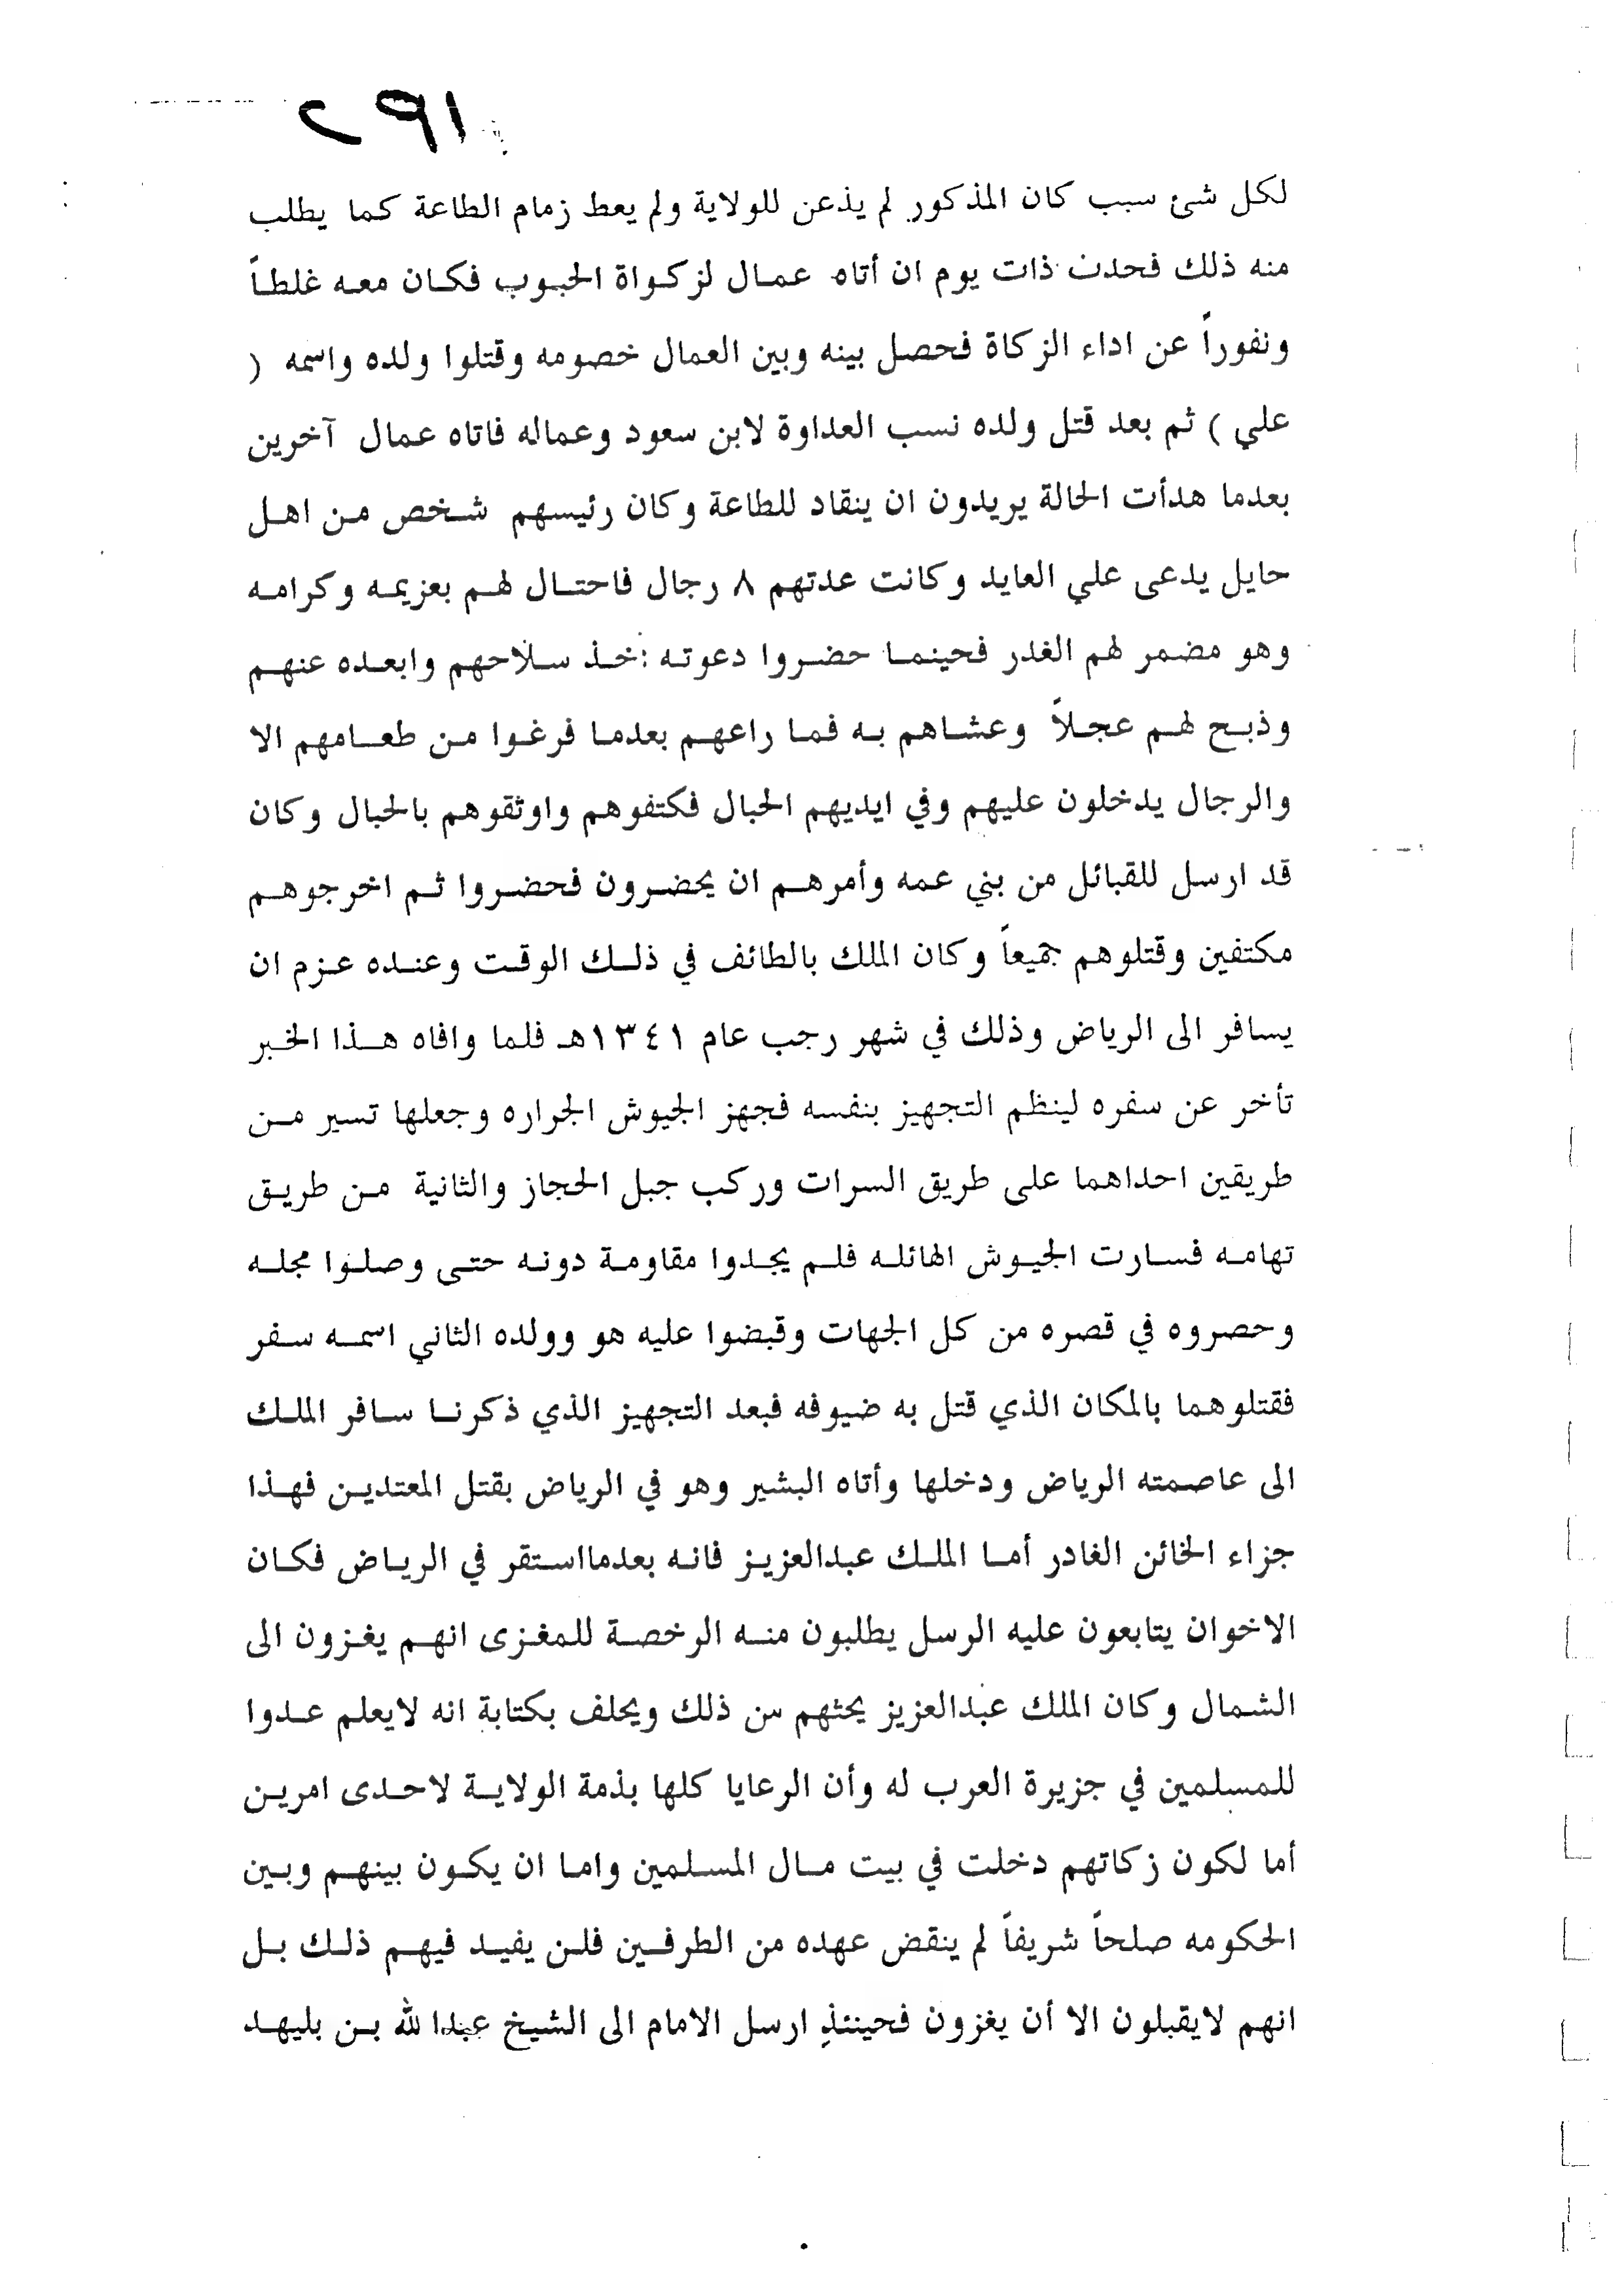 ٢٩١
لكل شئ سبب كان المذكور لم يذعن للولاية ولم يعط زمام الطاعة كما يطلب
منه ذلك فحدث ذات يوم ان أتاه عمال لزكواة الحبوب فكان معه غلطاً
ونفوراً عن اداء الزكاة فحصل بينه وبين العمال خصومه وقتلوا ولده واسمه (
علي ) ثم بعد قتل ولده نسب العداوة لابن سعود وعماله فاتاه عمال آخرين
بعدما هدأت الحالة يريدون ان ينقاد للطاعة وكان رئيسهم شخص من اهل
حايل يدعى علي العايد وكانت عدتهم ٨ رجال فاحتال لهم بعزيمه وكرامه
وهو مضمر لهم الغدر فحينما حضروا دعوته :خذ سلاحهم وابعده عنهم
وذبح لهم عجلاً وعشاهم به فما راعهم بعدما فرغوا من طعامهم الا
والرجال يدخلون عليهم وفي ايديهم الحبال فكتفوهم واوثقوهم بالحبال وكان
قد ارسل للقبائل من بني عمه وأمرهم ان يحضرون فحضروا ثم اخرجوهم
مكتفين وقتلوهم جميعاً وكان الملك بالطائف في ذلك الوقت وعنده عزم ان
يسافر الى الرياض وذلك في شهر رجب عام ١٣٤١هـ فلما وافاه هذا الخبر
تأخر عن سفره لينظم التجهيز بنفسه فجهز الجيوش الجراره وجعلها تسير من
طريقين احداهما على طريق السرات وركب جبل الحجاز والثانية من طريق
تهامه فسارت الجيوش الهائله فلم يجدوا مقاومة دونه حتى وصلوا مجله
وحصروه في قصره من كل الجهات وقبضوا عليه هو وولده الثاني اسمه سفر
فقتلوهما بالمكان الذي قتل به ضيوفه فبعد التجهيز الذي ذكرنا سافر الملك
الى عاصمته الرياض ودخلها وأتاه البشير وهو في الرياض بقتل المعتدين فهذا
جزاء الخائن الغادر أما الملك عبدالعزيز فانه بعدمااستقر في الرياض فكان
الاخوان يتابعون عليه الرسل يطلبون منه الرخصة للمغزى انهم يغزون الى
الشمال وكان الملك عبدالعزيز يحثهم من ذلك ويحلف بكتابة انه لايعلم عدوا
للمسلمين في جزيرة العرب له وأن الرعايا كلها بذمة الولاية لاحدى امرين
أما لكون زكاتهم دخلت في بيت مال المسلمين واما ان يكون بينهم وبين
الحكومه صلحاً شريفاً لم ينقض عهده من الطرفين فلن يفيد فيهم ذلك بل
انهم لايقبلون الا أن يغزون فحينئذٍ ارسل الامام الى الشيخ عبدالله بن بليهد